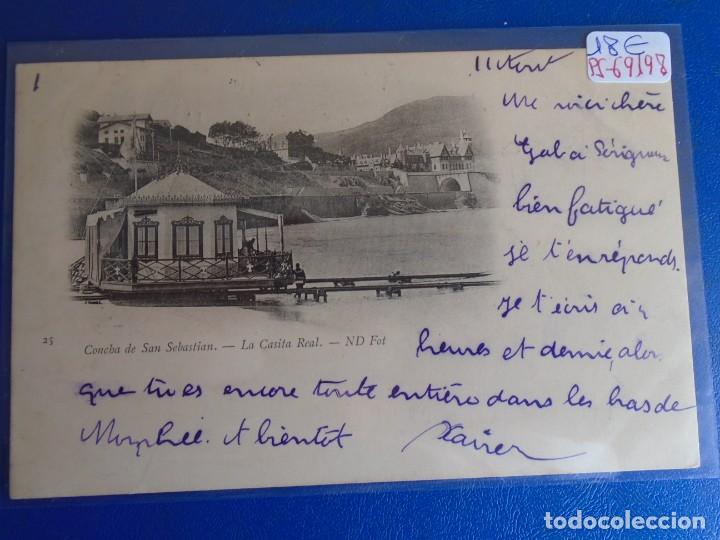 18€
PS-69198
1
11 Aout
Me voici chère
Gab à
bien fatigué
je t'en réponds.
je t'écris à
heures et demie, alors
que tu es encore toute entière dans les bras de
Morphée. A bientot Xavier
25
Concha de San Sebastian. — La Casita Real. — ND Fot
todocoleccion.net